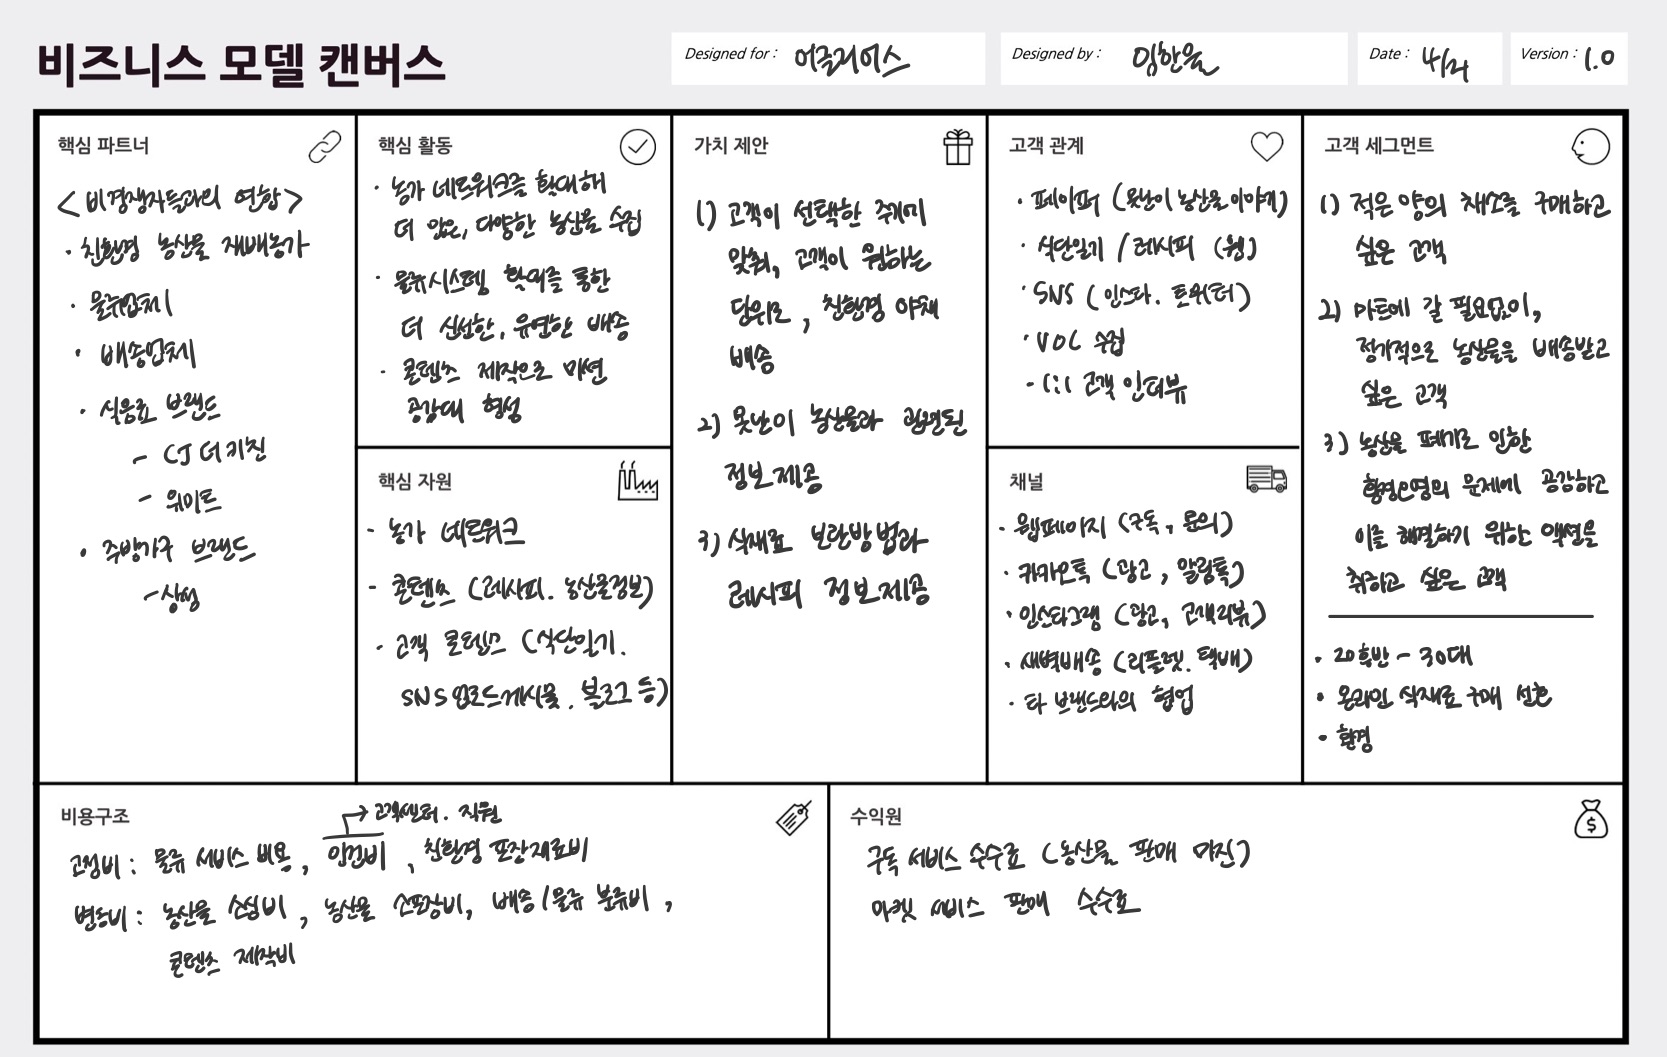 비즈니스 모델 캔버스
Designed for : 어글리어스
Designed by : 임한울
Date : 4/21
Version : 1.0
핵심 파트너
<비경쟁자들과의 연합>
· 친환경 농산물 재배농가
· 물류업체
· 배송업체
· 식음료 브랜드
- CJ 더키친
- 위미트
· 주방가구 브랜드
핵심 활동
· 농가 네트워크를 확대해
더 많은, 다양한 농산물 수급
· 물류시스템 확대를 통한
더 신선한, 유연한 배송
· 콘텐츠 제작으로 미션
공감대 형성
핵심 자원
- 농가 네트워크
- 콘텐츠 (레시피. 농산물정보)
- 고객 콘텐츠 (식단일기.
SNS 업로드게시물. 블로그 등)
가치 제안
1) 고객이 선택한 주기에
맞춰, 고객이 원하는
단위로, 친환경 야채
배송
2) 못난이 농산물과 관련된
정보제공
3) 식재료 보관방법과
레시피 정보제공
고객 관계
· 페이퍼 (못난이 농산물 이야기)
· 식단일기 / 레시피 (웹)
· SNS (인스타. 트위터)
· VOC 수집
- 1:1 고객 인터뷰
채널
· 웹페이지 (구독, 문의)
· 카카오톡 (광고, 알림톡)
· 인스타그램 (광고, 고객리뷰)
· 새벽배송 (리플렛. 택배)
· 타 브랜드와의 협업
고객 세그먼트
1) 적은 양의 채소를 구매하고
싶은 고객
2) 마트에 갈 필요없이,
정기적으로 농산물을 배송받고
싶은 고객
3) 농산물 폐기로 인한
환경오염의 문제에 공감하고
이를 해결하기 위한 액션을
취하고 싶은 고객
· 20후반 - 30대
· 온라인 식재료 구매 선호
· 환경
비용구조
→ 고객센터. 직원
고정비 : 물류 서비스 비용, 인건비, 친환경 포장재료비
변동비 : 농산물 손실비, 농산물 소포장비, 배송/물류 분류비,
콘텐츠 제작비
수익원
구독 서비스 수수료 (농산물 판매 마진)
마켓 서비스 판매 수수료